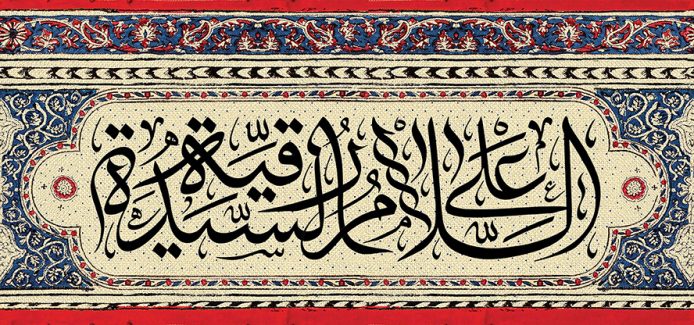 السَّلَامُ عَلَى السَّيِّدَة رُقَيَّة